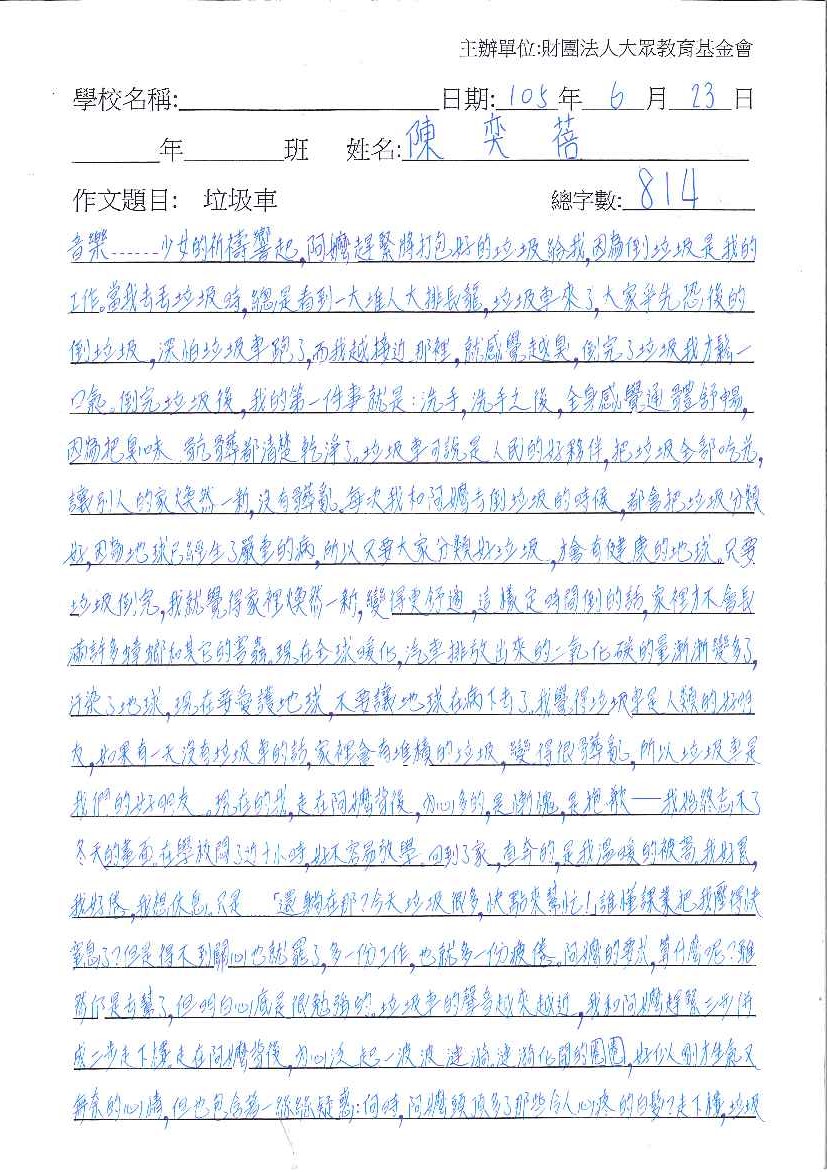 主辦單位:財團法人大眾教育基金會
學校名稱: 日期: 105 年 6 月 23 日
年 班 姓名: 陳 奕 蓓
作文題目: 垃圾車 總字數: 814
音樂……少女的祈禱響起,阿嬤趕緊將打包好的垃圾給我,因為倒垃圾是我的
工作。當我去丟垃圾時,總是看到一大堆人大排長龍,垃圾車來了,大家爭先恐後的
倒垃圾,深怕垃圾車跑了,而我越接近那裡,就感覺越臭,倒完了垃圾我才鬆一
口氣。倒完垃圾後,我的第一件事就是:洗手,洗手之後,全身感覺通體舒暢,
因為把臭味、骯髒都清楚乾淨了。垃圾車可說是人民的好夥伴,把垃圾全部吃光,
讓別人的家煥然一新,沒有髒亂。每次我和阿嬤去倒垃圾的時候,都會把垃圾分類
好,因為地球已經生了嚴重的病,所以只要大家分類好垃圾,才會有健康的地球。只要
垃圾倒完,我就覺得家裡煥然一新,變得更舒適,這樣定時間倒的話,家裡才不會長
滿許多蟑螂和其它的害蟲。現在全球暖化,汽車排放出來的二氧化碳的量漸漸變多了,
汙染了地球,現在要愛護地球,不要讓地球在病下去了。我覺得垃圾車是人類的好朋
友,如果有一天沒有垃圾車的話,家裡會有堆積的垃圾,變得很髒亂,所以垃圾車是
我們的好朋友。現在的我,走在阿嬤背後,內心多的,是慚愧,是抱歉——我始終忘不了
冬天的畫面。在學校悶了近十小時,好不容易放學。回到了家,直奔的,是我溫暖的被窩。我好累,
我好倦,我想休息。只是 「還躺在那?今天垃圾很多,快點來幫忙!」誰懂課業把我壓得快
窒息了?但是得不到關心也就罷了,多一份工作,也就多一份疲倦。阿嬤的要求,算什麼呢?雖
然仍是去幫了,但明白心底是很勉強的。垃圾車的聲音越來越近,我和阿嬤趕緊三步併
成二步走下樓。走在阿嬤背後,內心泛起一波波漣漪。漣漪化開的圈圈,好似剛才生氣又
無奈的心情,但也包含著一絲絲疑惑:何時,阿嬤頭頂多了那些令人心疼的白髮?走下樓,垃圾